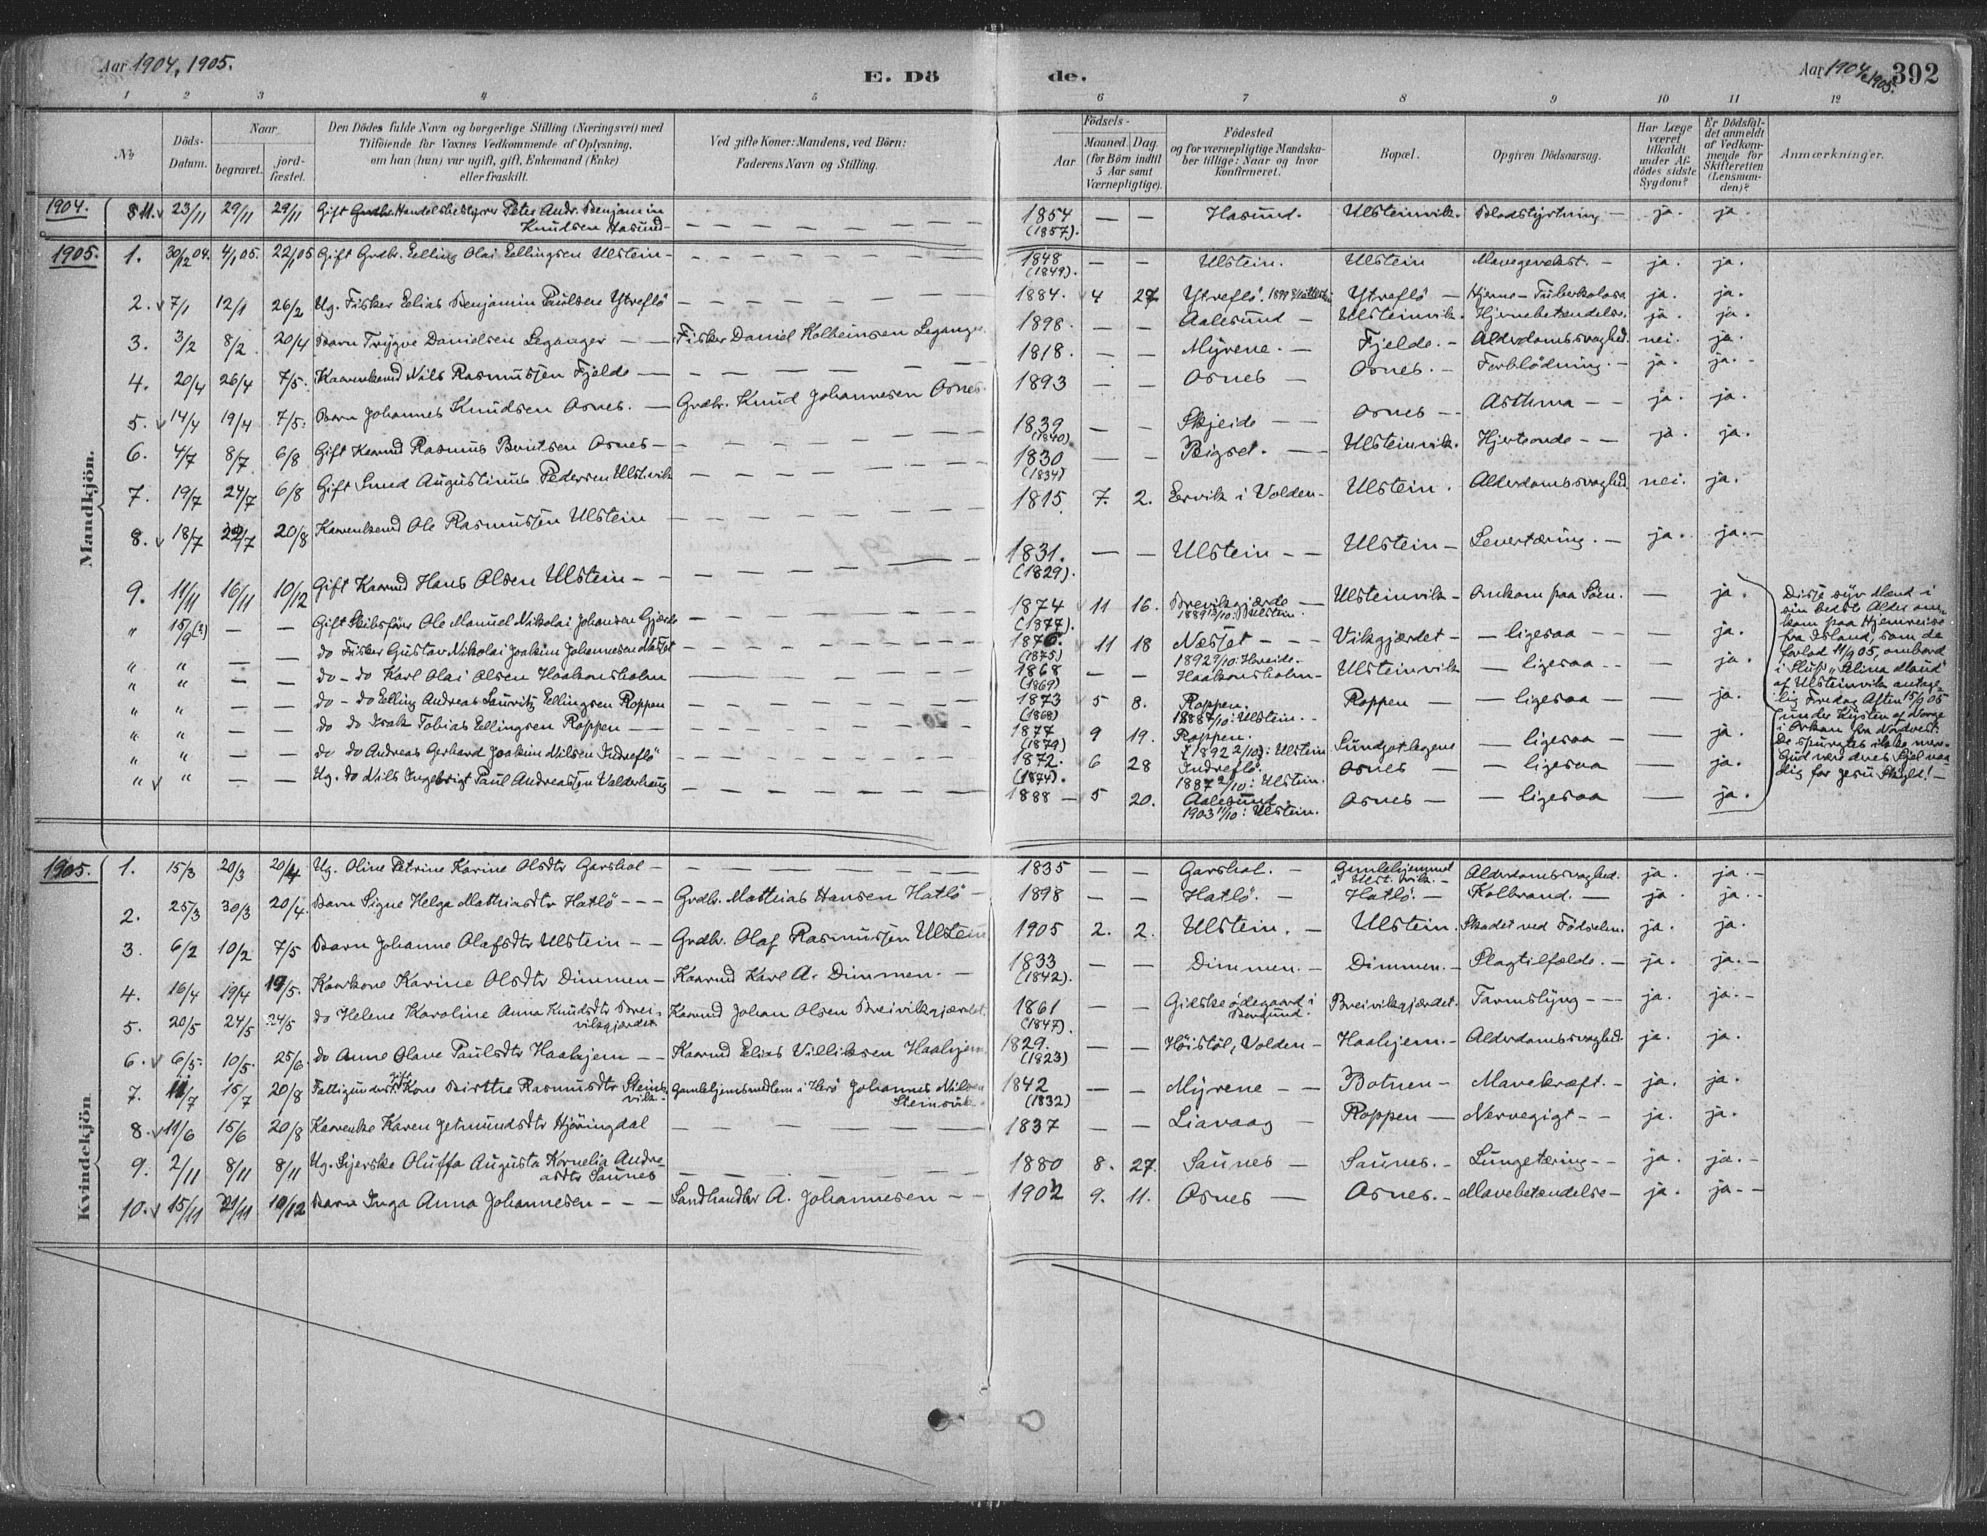 Aar 1904, 1905.
E. Dö de.
Aar 1904, 1905. 392
1 2 3 4 5 6 7 8 9 10 11 12
No
Döds-Datum.
Naar
begravet.
jordfæstet.
Den Dödes fulde Navn og borgerlige Stilling (Næringsvei) med
Tilföiende for Voxnes Vedkommende af Oplysning,
om han (hun) var ugift, gift, Enkemand (Enke)
eller fraskilt.
Ved gifte Koner: Mandens, ved Börn:
Faderens Navn og Stilling.
Födsels-
Aar
Maaned. Dag.
(for Börn indtil
5 Aar samt
Værnepligtige).
Födested
og for værnepligtige Mandska-
ber tillige: Naar og hvor
konfirmeret.
Bopæl.
Opgiven Dödsaarsag.
Har Læge
været
tilkaldt
under Af-
dödes sidste
Sygdom?
Er Dödsfal-
det anmeldt
af Vedkom-
mende for
Skifteretten
(Lensman-
den)?
Anmærkninger.
Mandkjön.
1904. 11. 23/11 29/11 29/11 Gift Handelsbestyrer Peter Andr. Benjamin
Knudsen Hasund 1854 (1857). — — Hasund. Ulsteinvik. Blodstyrtning — ja. ja.
1905. 1. 30/12 04. 4/1 05. 22/1 05 Gift Grdbr. Elling Olai Ellingsen Ulstein — 1848 (1849). — — Ulstein. Ulstein Mavegevekst. — ja. ja.
2. 7/1 12/1 26/2 Ug. Fisker Elias Benjamin Paulsen Ytreflö 1884. 4 27 Ytreflö. Ytreflö — Hjerne-Tuberkolose ja. ja.
3. 3/2 8/2. 20/4 Barn Trygve Danielsen Leganger — Fisker Daniel Kolbeinsen Leganger 1898. — — Aalesund — Ulsteinvik. Hjernebetændelse. ja. ja.
4. 20/4 26/4 7/5. Kaarenkemd Nils Rasmussen Fjelde — 1818. — — Myrene. — Fjelde. — Alderdomssvaghed. nei. ja.
5. 14/4 19/4 7/5. Barn Johannes Knudsen Osnes. — Grdbr. Knud Johannesen Osnes 1893 — — Osnes — Osnes. — Forblödning. — ja. ja. —
6. 4/7 8/7 6/8 Gift Kaarmd Rasmus Berntsen Osnes — 1839 (1840) — — Skjeide — Osnes — Asthma — ja. ja.
7. 19/7 24/7 6/8 Gift Smed Augustinus Pedersen Ulst.vik 1830 (1834) — — Bigset. — Ulsteinvik. Hjerteonde — ja. ja.
8. 18/7 22/7 20/8 Kaarenkemd Ole Rasmussen Ulstein 1815. 7. 2. Ervik i Volden — Ulstein. Alderdomssvaghed. nei. ja.
9. 11/11 16/11 10/12 Gift Kaarmd Hans Olsen Ulstein — 1831. (1829). — — Ulstein — Ulstein — Levertæring. — ja. ja. —
" 15/9 (?) — — Gift Skibsförer Ole Manuel Nikolai Johansen Gjærde 1874 (1877). 11 16. Brevikgjærde — 1889 13/10: Ulstein. Ulsteinvik — Omkom paa Söen. — ja.
" " — — do Fisker Gustav Nikolai Joakim Johannesen Næsset 1876. (1875) 11 18 Næsset — 1892 9/10: Hareide. Vikgjærdet — — ligesaa — — ja.
" " — — do — do Karl Olai Olsen Haakonsholm 1868 (1869) — — Haakonsholm — Ulsteinvik — ligesaa — — ja.
" " — — do — do Elling Andreas Lauritz Ellingsen Roppen 1873 (1868) 5 8. Roppen. 1888 7/10: Ulstein. Roppen — — ligesaa — ja.
" " — — do do Isak Tobias Ellingsen Roppen — 1877 (1879) 9 19. Roppen. (1892 2/10): Ulstein Sundgotlegene — ligesaa — — ja.
" " — — do do Andreas Gerhard Joakim Nilsen Indreflö 1872. (1874). 6 28 Indreflö. 1887 2/10: Ulstein. Osnes — — ligesaa — ja.
" " — — Ug. do Nils Ingebrigt Paul Andreassen Valderhaug 1888 — 5 20. Aalesund. 1903 11/10: Ulstein. Osnes — — ligesaa — ja.
Disse syv Mænd i
sin bedste Alder om-
kom paa Hjemreise
fra Island, som de
forlod 11/9 05, ombord
i Slup „Selina Maud"
af Ulsteinvik antage-
lig Fredag Aften 15/9 05
under Kysten af Norge
i Orkan fra Nordvest.
De spurgtes ikke mere.
Gud være deres Sjel naa-
dig for Jesu Skyld! —
Kvindekjön
1905. 1. 15/3 20/3 20/4 Ug. Oline Petrine Karine Olsdtr Garshol — 1835 — — Garshol. — Gamlehjemmet Ulst.vik. — Alderdomssvaghed. ja. ja. —
2. 25/3 30/3 20/4. Barn Signe Helga Mathiasdtr Hatlö — Grdbr. Matthias Hansen Hatlö — 1898 — — Hatlö. — Hatlö. — Kolbrand. — ja. ja. —
3. 6/2 10/2 7/5 Barn Johanne Olafsdtr Ulstein — Grdbr. Olaf Rasmussen Ulstein 1905 2. 2. Ulstein. — Ulstein. Skadet ved Födselen. ja. ja.
4. 16/4 19/4 19/5. Kaarkone Karine Olsdtr Dimmen — Kaarmd Karl A. Dimmen. — 1833 (1842). — — Dimmen. — Dimmen. — Slagtilfælde. — ja. ja. —
5. 20/5 24/5 24/5 do Helene Karoline Anna Knudsdtr Brei-
vikgjærdet Kaarmd Johan Olsen Breivikgjærdet. 1861 (1847). — — Gidske ödegaard i Borgund. Breivikgjærdet. Tarmslyng — ja. ja. —
6. 6/5. 10/5. 25/6. do Anne Olave Paulsdtr Haahjem — Kaarmd Elias Villiksen Haahjem 1829. (1823) — — Höistöl, Volden — Haahjem. — Alderdomssvaghed. ja. ja.
7. 11/7 15/7 20/8 Fattigunderst. gift Kone Birthe Rasmusdtr Steins-
vik. Gamlehjemsmedlem i Herö Johannes Nilsen
Steinsvik 1842 (1832) — — Myrene — Botnen — Mavekræft. — ja. ja.
8. 11/6 15/6 20/8 Kaarenke Karen Jetmundsdtr Hjöringdal 1837 — — Liavaag Roppen — Nervegigt — ja. ja.
9. 2/11 8/11 8/11 Ug. Sjerske Oluffa Augusta Kornelia Andre-
asdtr Saunes 1880 8. 27. Saunes — Saunes. — Lungetæring — ja. ja. —
10. 15/11 21/11 10/12 Barn Inga Anna Johannesen — Landhandler A. Johannesen — 1902 9. 11. Osnes — Osnes. — Mavebetændelse — ja. ja. —